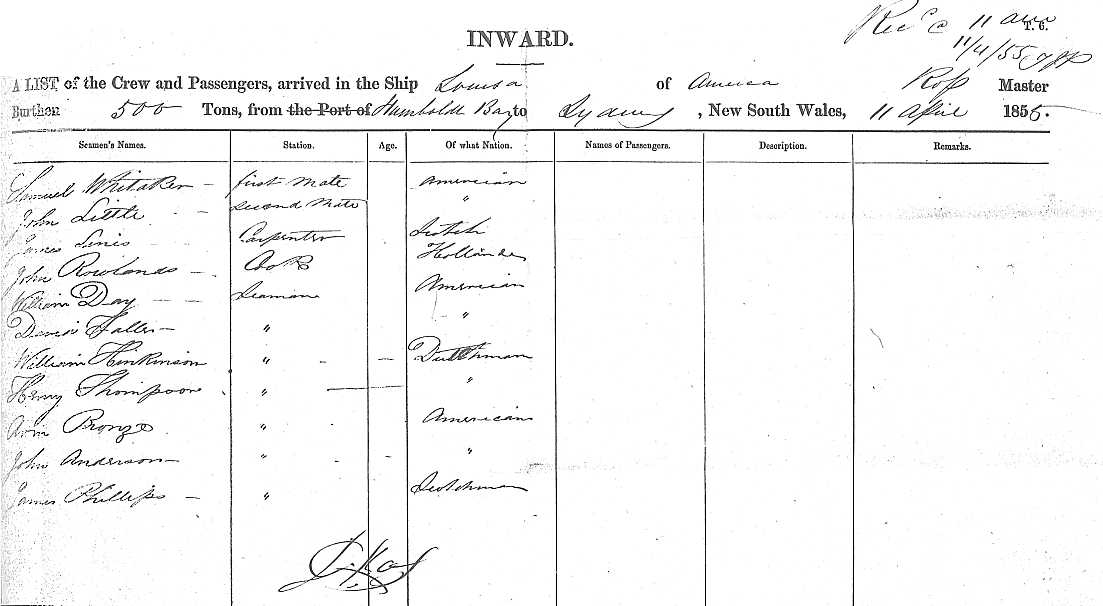 INWARD.
T. 6.
11/4/55
A LIST of the Crew and Passengers, arrived in the Ship Louisa of America Ross Master
Burthen 500 Tons, from the Port of Humboldt Bay to Sydney, New South Wales, 11 April 1855.
Seamen's Names. Station. Age. Of what Nation. Names of Passengers. Description. Remarks.
Samuel Whitaker — first Mate American
John Little - — Second Mate "
James Carpenter Scotch
John Rowlands — Cook Hollander
William Day — — Seaman American
David Faller — " "
William Hinkinson " - — Dutchman
Henry Thompson " "
Bronze " American
John Anderson — " "
James Phillips — " Scotchman